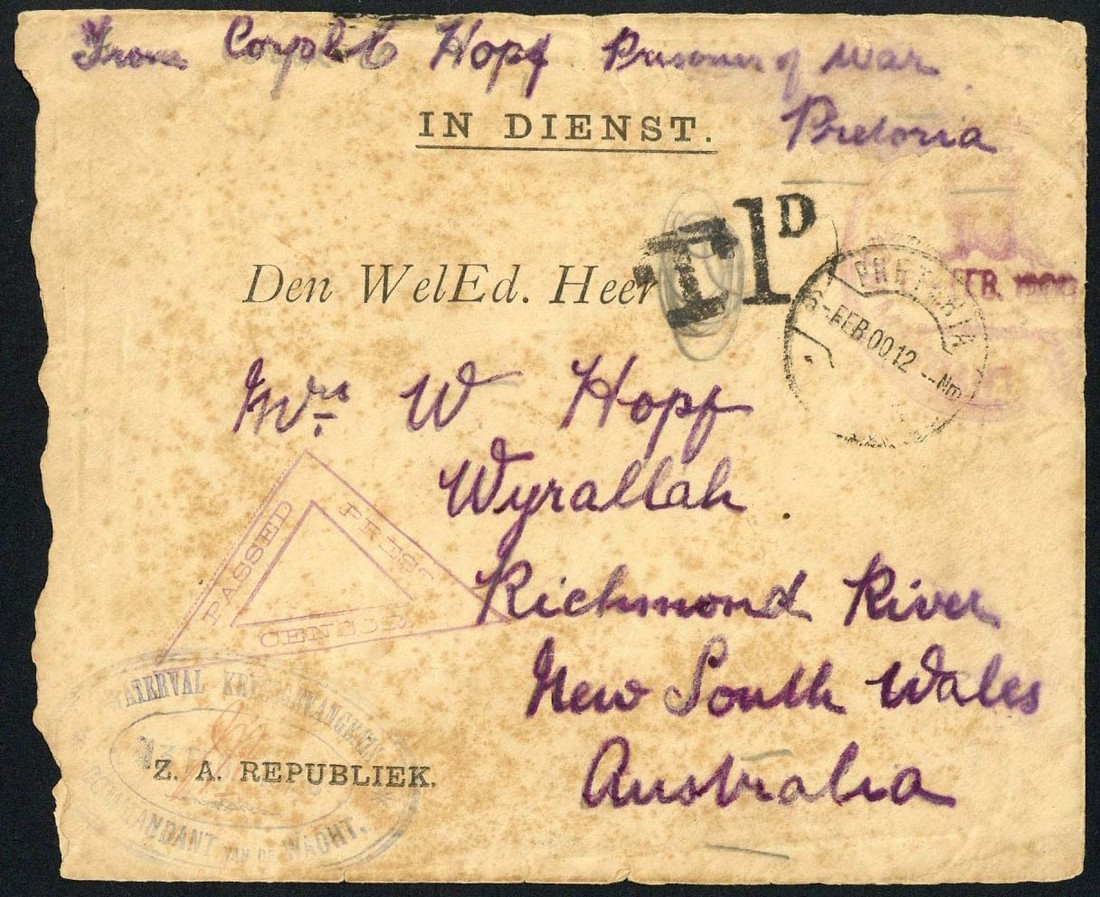 From Corpl C Hopf Prisoner of War
Pretoria
IN DIENST.
T1D
Den WelEd. Heer
PRETORIA
6-FEB 00 12 --Nm
FEB. 1900
Mrs W Hopf
Wyrallah
Richmond River
New South Wales
Australia
PASSED PRESS CENSOR
WATERVAL
Z. A. REPUBLIEK.
COMMANDANT VAN DE WACHT.